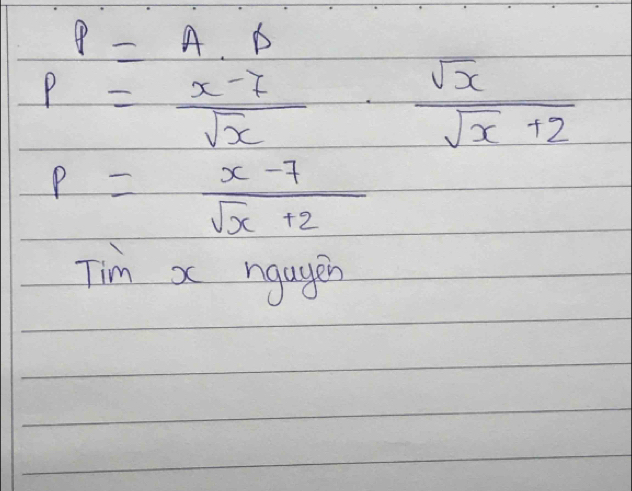 P = A . B
P = \frac{x-7}{\sqrt{x}} . \frac{\sqrt{x}}{\sqrt{x}+2}
P = \frac{x-7}{\sqrt{x}+2}
Tìm x nguyên